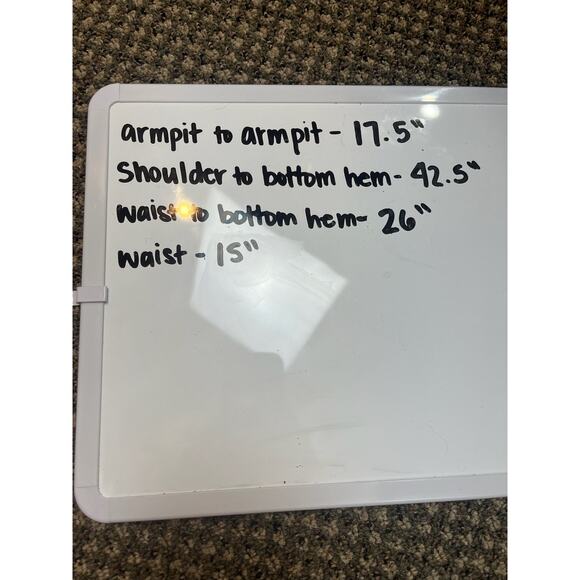 armpit to armpit - 17.5"
Shoulder to bottom hem - 42.5"
waist to bottom hem - 26"
waist - 15"